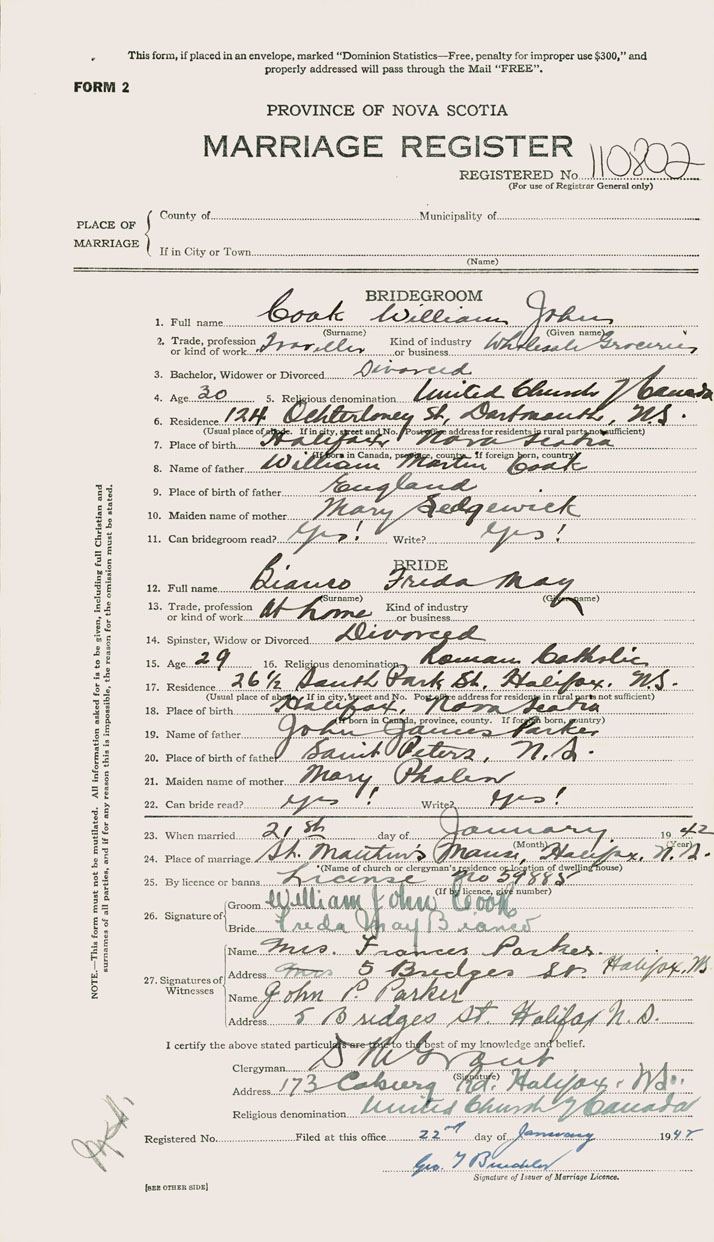 This form, if placed in an envelope, marked "Dominion Statistics—Free, penalty for improper use $300," and
properly addressed will pass through the Mail "FREE".
FORM 2
PROVINCE OF NOVA SCOTIA
MARRIAGE REGISTER
REGISTERED No. 110802
(For use of Registrar General only)
PLACE OF MARRIAGE
County of Municipality of
If in City or Town
(Name)
BRIDEGROOM
1. Full name Cook William John
(Surname) (Given name)
2. Trade, profession or kind of work Traveller Kind of industry or business Wholesale Groceries
3. Bachelor, Widower or Divorced Divorced
4. Age 30 5. Religious denomination United Church of Canada
6. Residence 124 Ochterloney St, Dartmouth, N.S.
(Usual place of abode. If in city, street and No. Post office address for residents in rural parts not sufficient)
7. Place of birth Halifax, Nova Scotia
(If born in Canada, province, county. If foreign born, country)
8. Name of father William Martin Cook
9. Place of birth of father England
10. Maiden name of mother Mary Sedgewick
11. Can bridegroom read? Yes! Write? Yes!
BRIDE
12. Full name Bianco Freda May
(Surname) (Given name)
13. Trade, profession or kind of work At home Kind of industry or business
14. Spinster, Widow or Divorced Divorced
15. Age 29 16. Religious denomination Roman Catholic
17. Residence 26½ South Park St, Halifax. N.S.
(Usual place of abode. If in city, street and No. Post office address for residents in rural parts not sufficient)
18. Place of birth Halifax, Nova Scotia
(If born in Canada, province, county. If foreign born, country)
19. Name of father John James Parker
20. Place of birth of father Saint Peters, N.S.
21. Maiden name of mother Mary Phalen
22. Can bride read? Yes! Write? Yes!
23. When married 21st day of January 1942
(Month) (Year)
24. Place of marriage St. Matthew's Manse, Halifax, N.S.
(Name of church or clergyman's residence or location of dwelling house)
25. By licence or banns License No 59885
(If by licence, give number)
26. Signature of
Groom William John Cook
Bride Freda May Bianco
27. Signatures of Witnesses
Name Mrs. Frances Parker.
Address 5 Bridges St. Halifax, N.S.
Name John P. Parker
Address 5 Bridges St. Halifax N.S.
I certify the above stated particulars are true to the best of my knowledge and belief.
Clergyman D M Grant
(Signature)
Address 173 Coburg Rd. Halifax. N.S.
Religious denomination United Church of Canada
Registered No. Filed at this office 22nd day of January 1942
Geo.
Signature of Issuer of Marriage Licence.
[SEE OTHER SIDE]
NOTE.—This form must not be mutilated. All information asked for is to be given, including full Christian and
surnames of all parties, and if for any reason this is impossible, the reason for the omission must be stated.